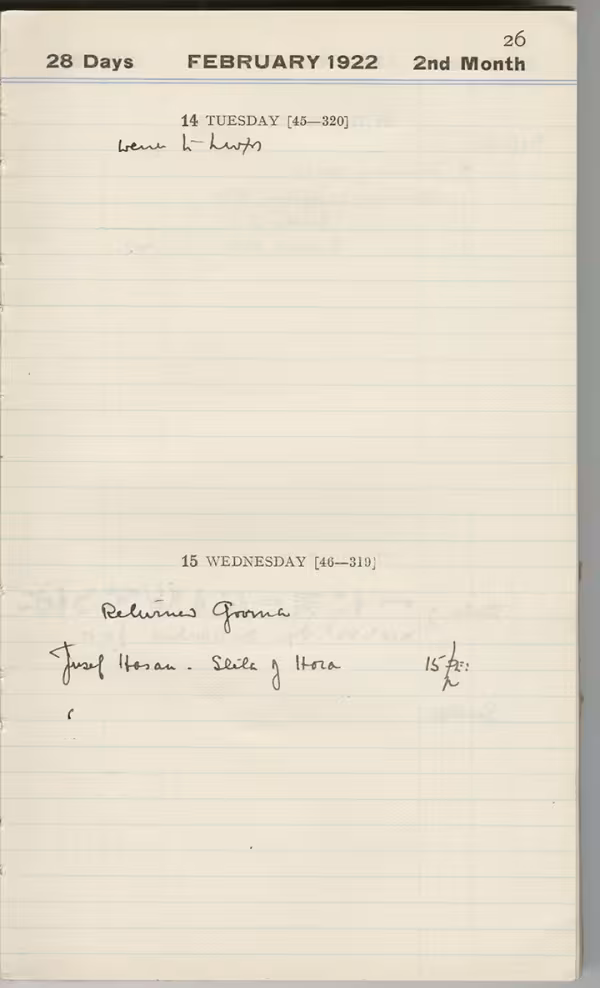 26
28 Days FEBRUARY 1922 2nd Month
14 TUESDAY [45—320]
went to
15 WEDNESDAY [46—319]
Returned Gooma
Jusef Hasan. of Hora 15